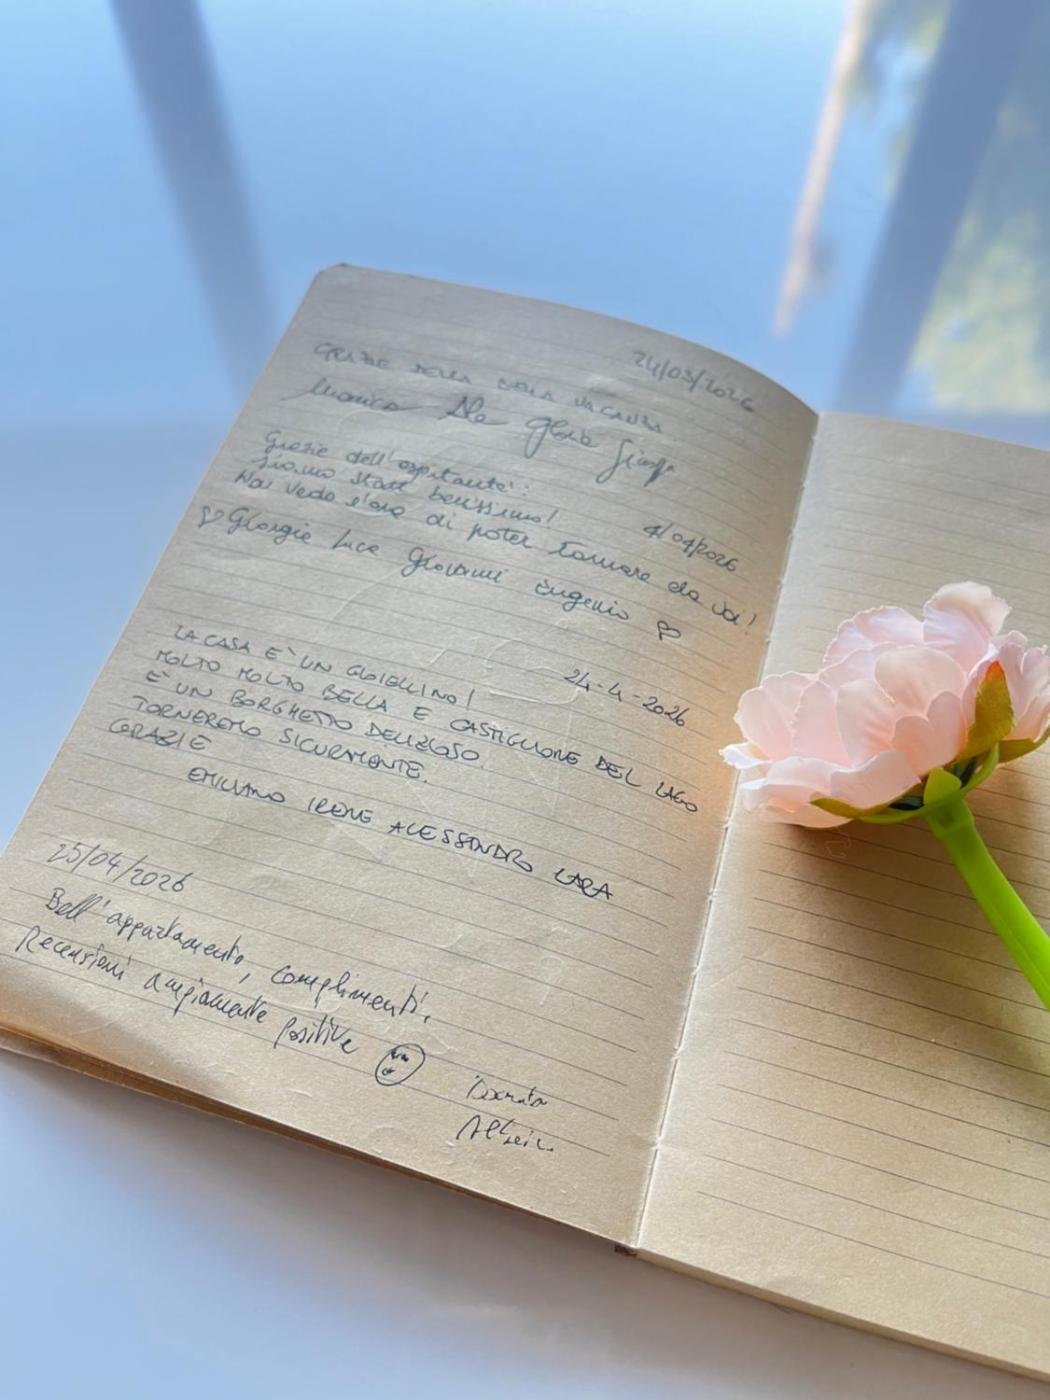 24/03/2026
GRAZIE DELLA BELLA VACANZA
Monica Ale
Grazie dell'ospitalità!
4/04/2026
Siamo stati benissimo!
Non vedo l'ora di poter tornare da voi!
Giorgia Luca Giovanni Eugenio
24-4-2026
LA CASA E` UN GIOIELLINO!
MOLTO MOLTO BELLA E CASTIGLIONE DEL LAGO
E` UN BORGHETTO DELIZIOSO.
TORNEREMO SICURAMENTE.
GRAZIE
EMILIANO IRENE ALESSANDRO LARA
25/04/2026
Bell'appartamento, complimenti,
Recensioni ampiamente positive